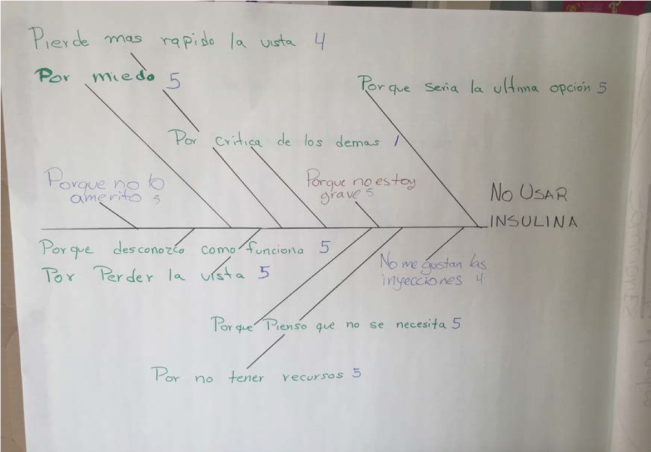 Pierde mas rapido la vista 4
Por miedo 5
Porque seria la ultima opción 5
Por critica de los demas 1
Porque no lo
amerito 5
Porque no estoy
grave 5
NO USAR
INSULINA
Porque desconozco como funciona 5
Por Perder la vista 5
No me gustan las
inyecciones 4
Porque Pienso que no se necesita 5
Por no tener recursos 5